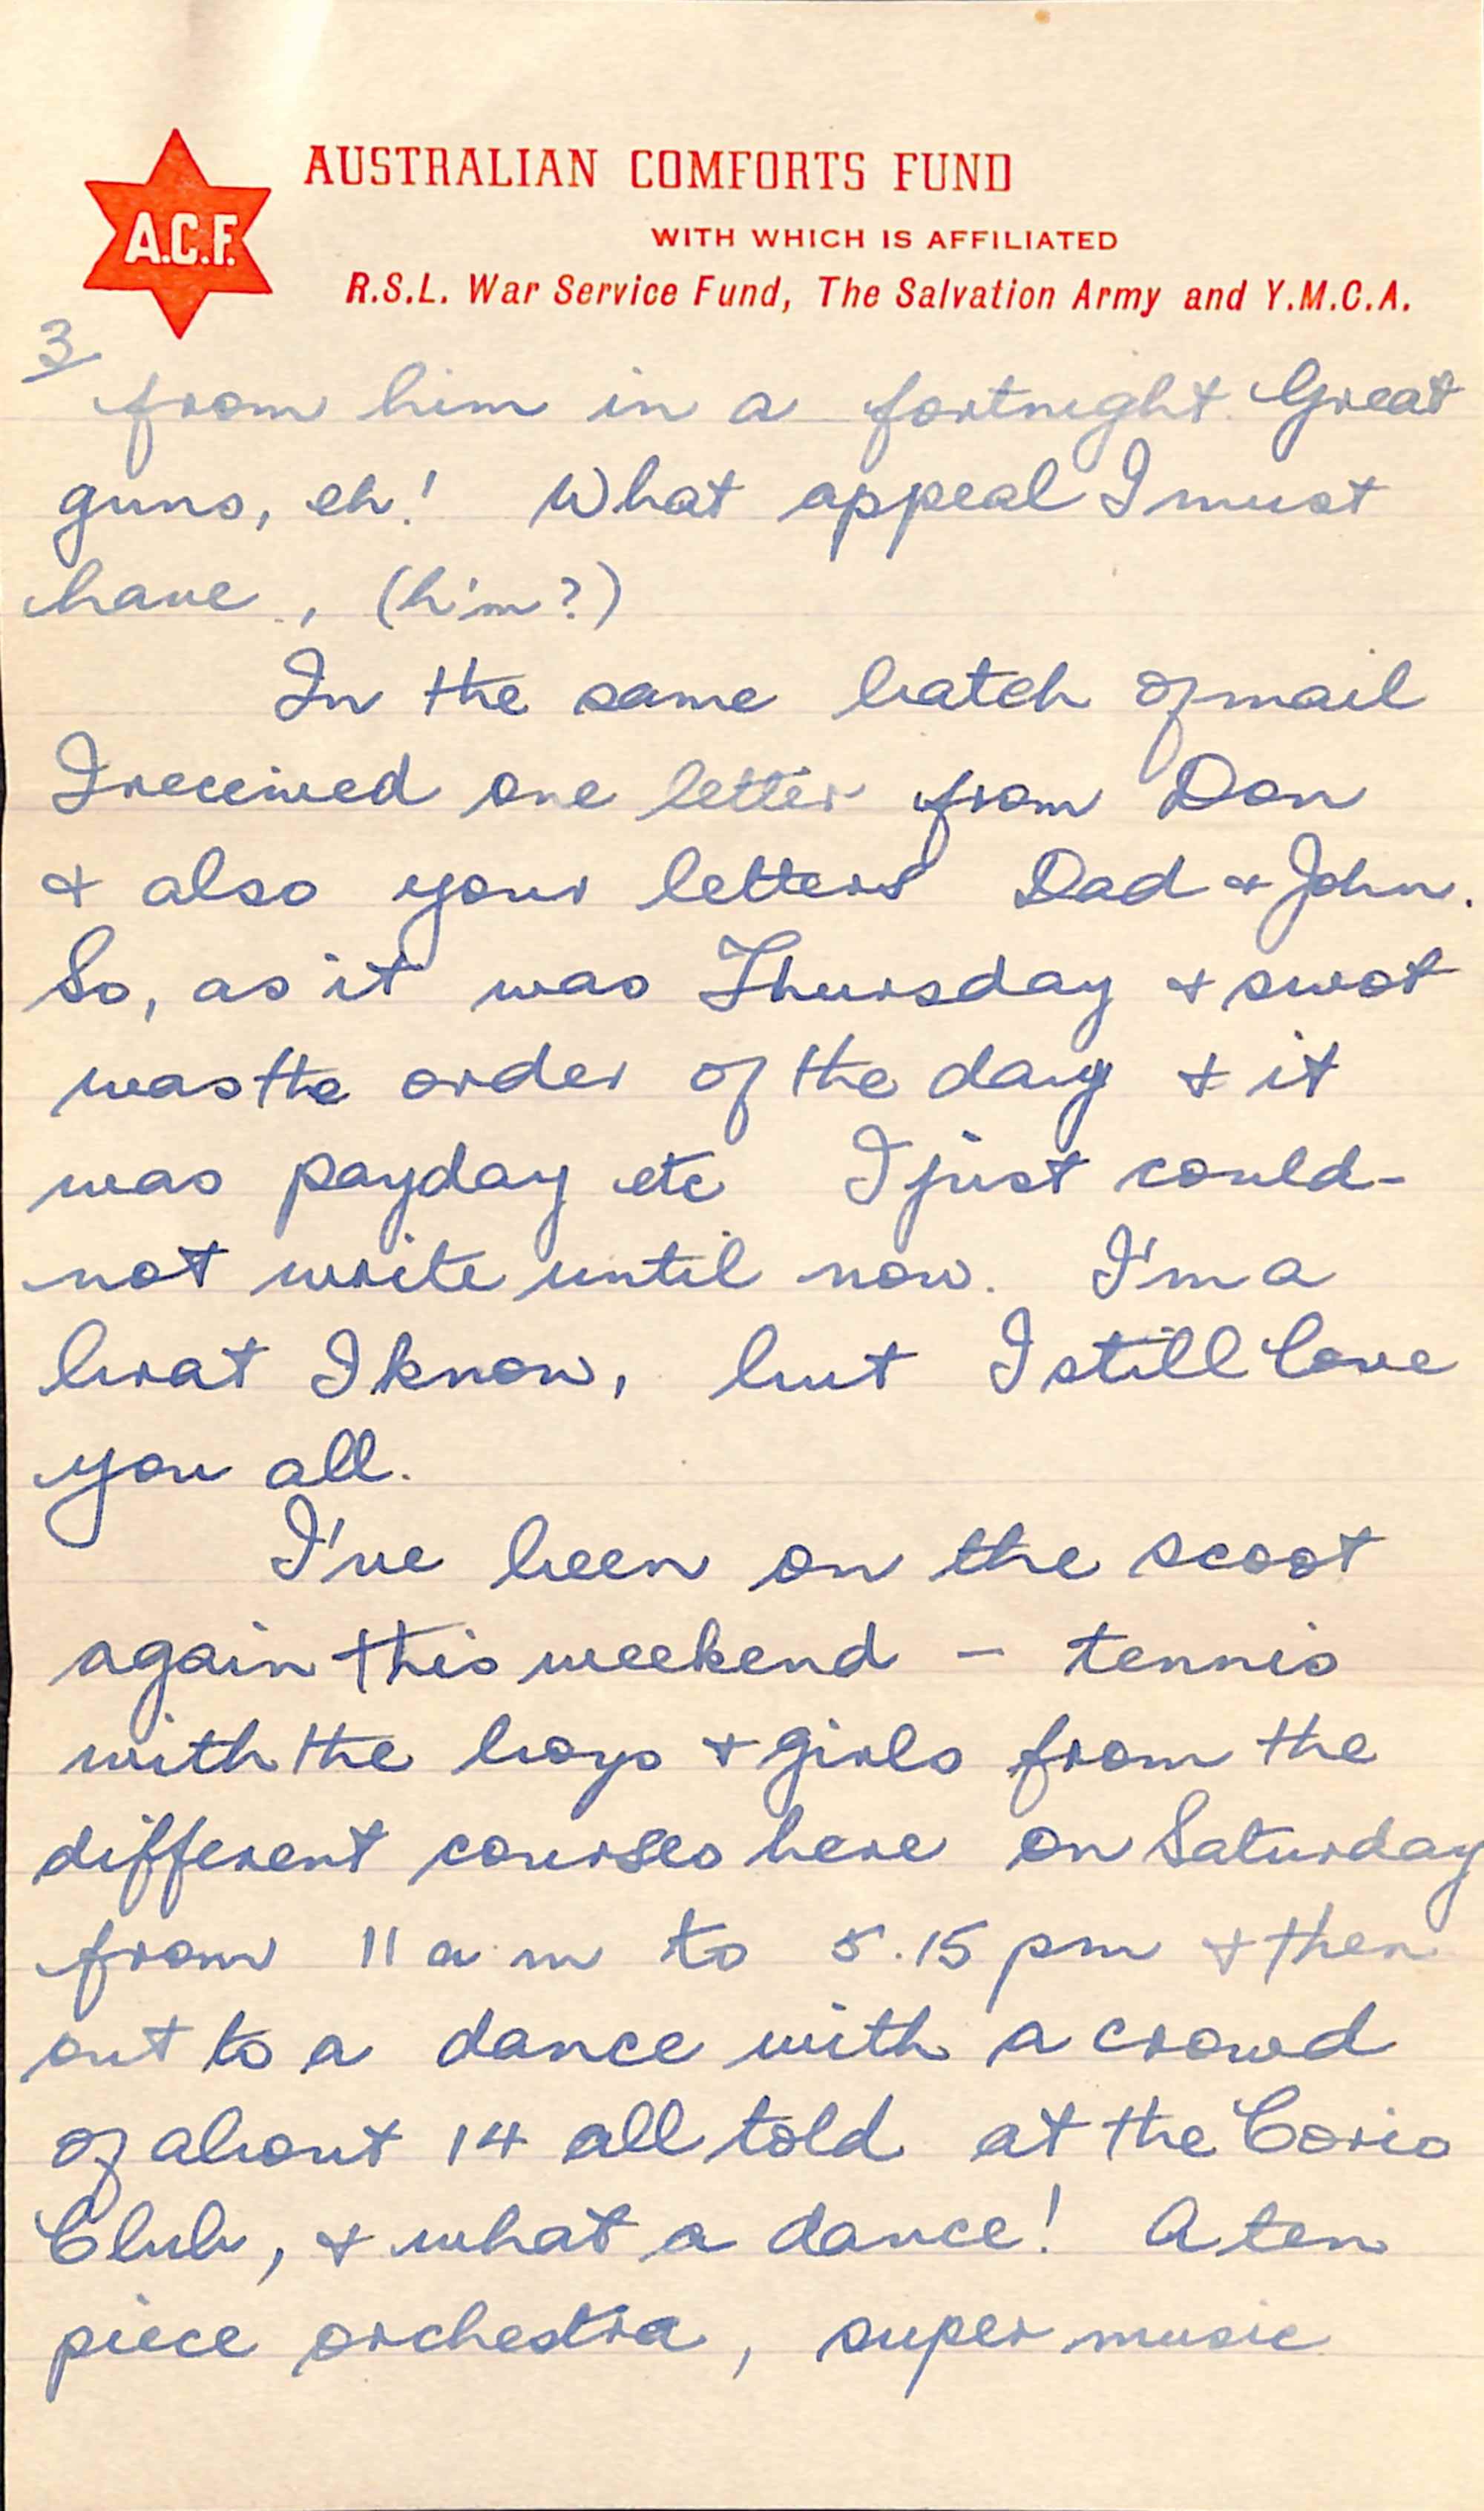 AUSTRALIAN COMFORTS FUND
A.C.F.
WITH WHICH IS AFFILIATED
R.S.L. War Service Fund, The Salvation Army and Y.M.C.A.
3
from him in a fortnight. Great
guns, eh! What appeal I must
have, (h'm?)
In the same batch of mail
I received one letter from Don
& also your letters Dad & John.
So, as it was Thursday & swot
was the order of the day & it
was payday etc I just could-
not write until now. I'm a
brat I know, but I still love
you all.
I've been on the scoot
again this weekend - tennis
with the boys & girls from the
different courses here on Saturday
from 11 a m to 5.15 pm & then
out to a dance with a crowd
of about 14 all told at the Corio
Club, & what a dance! A ten
piece orchestra, super music